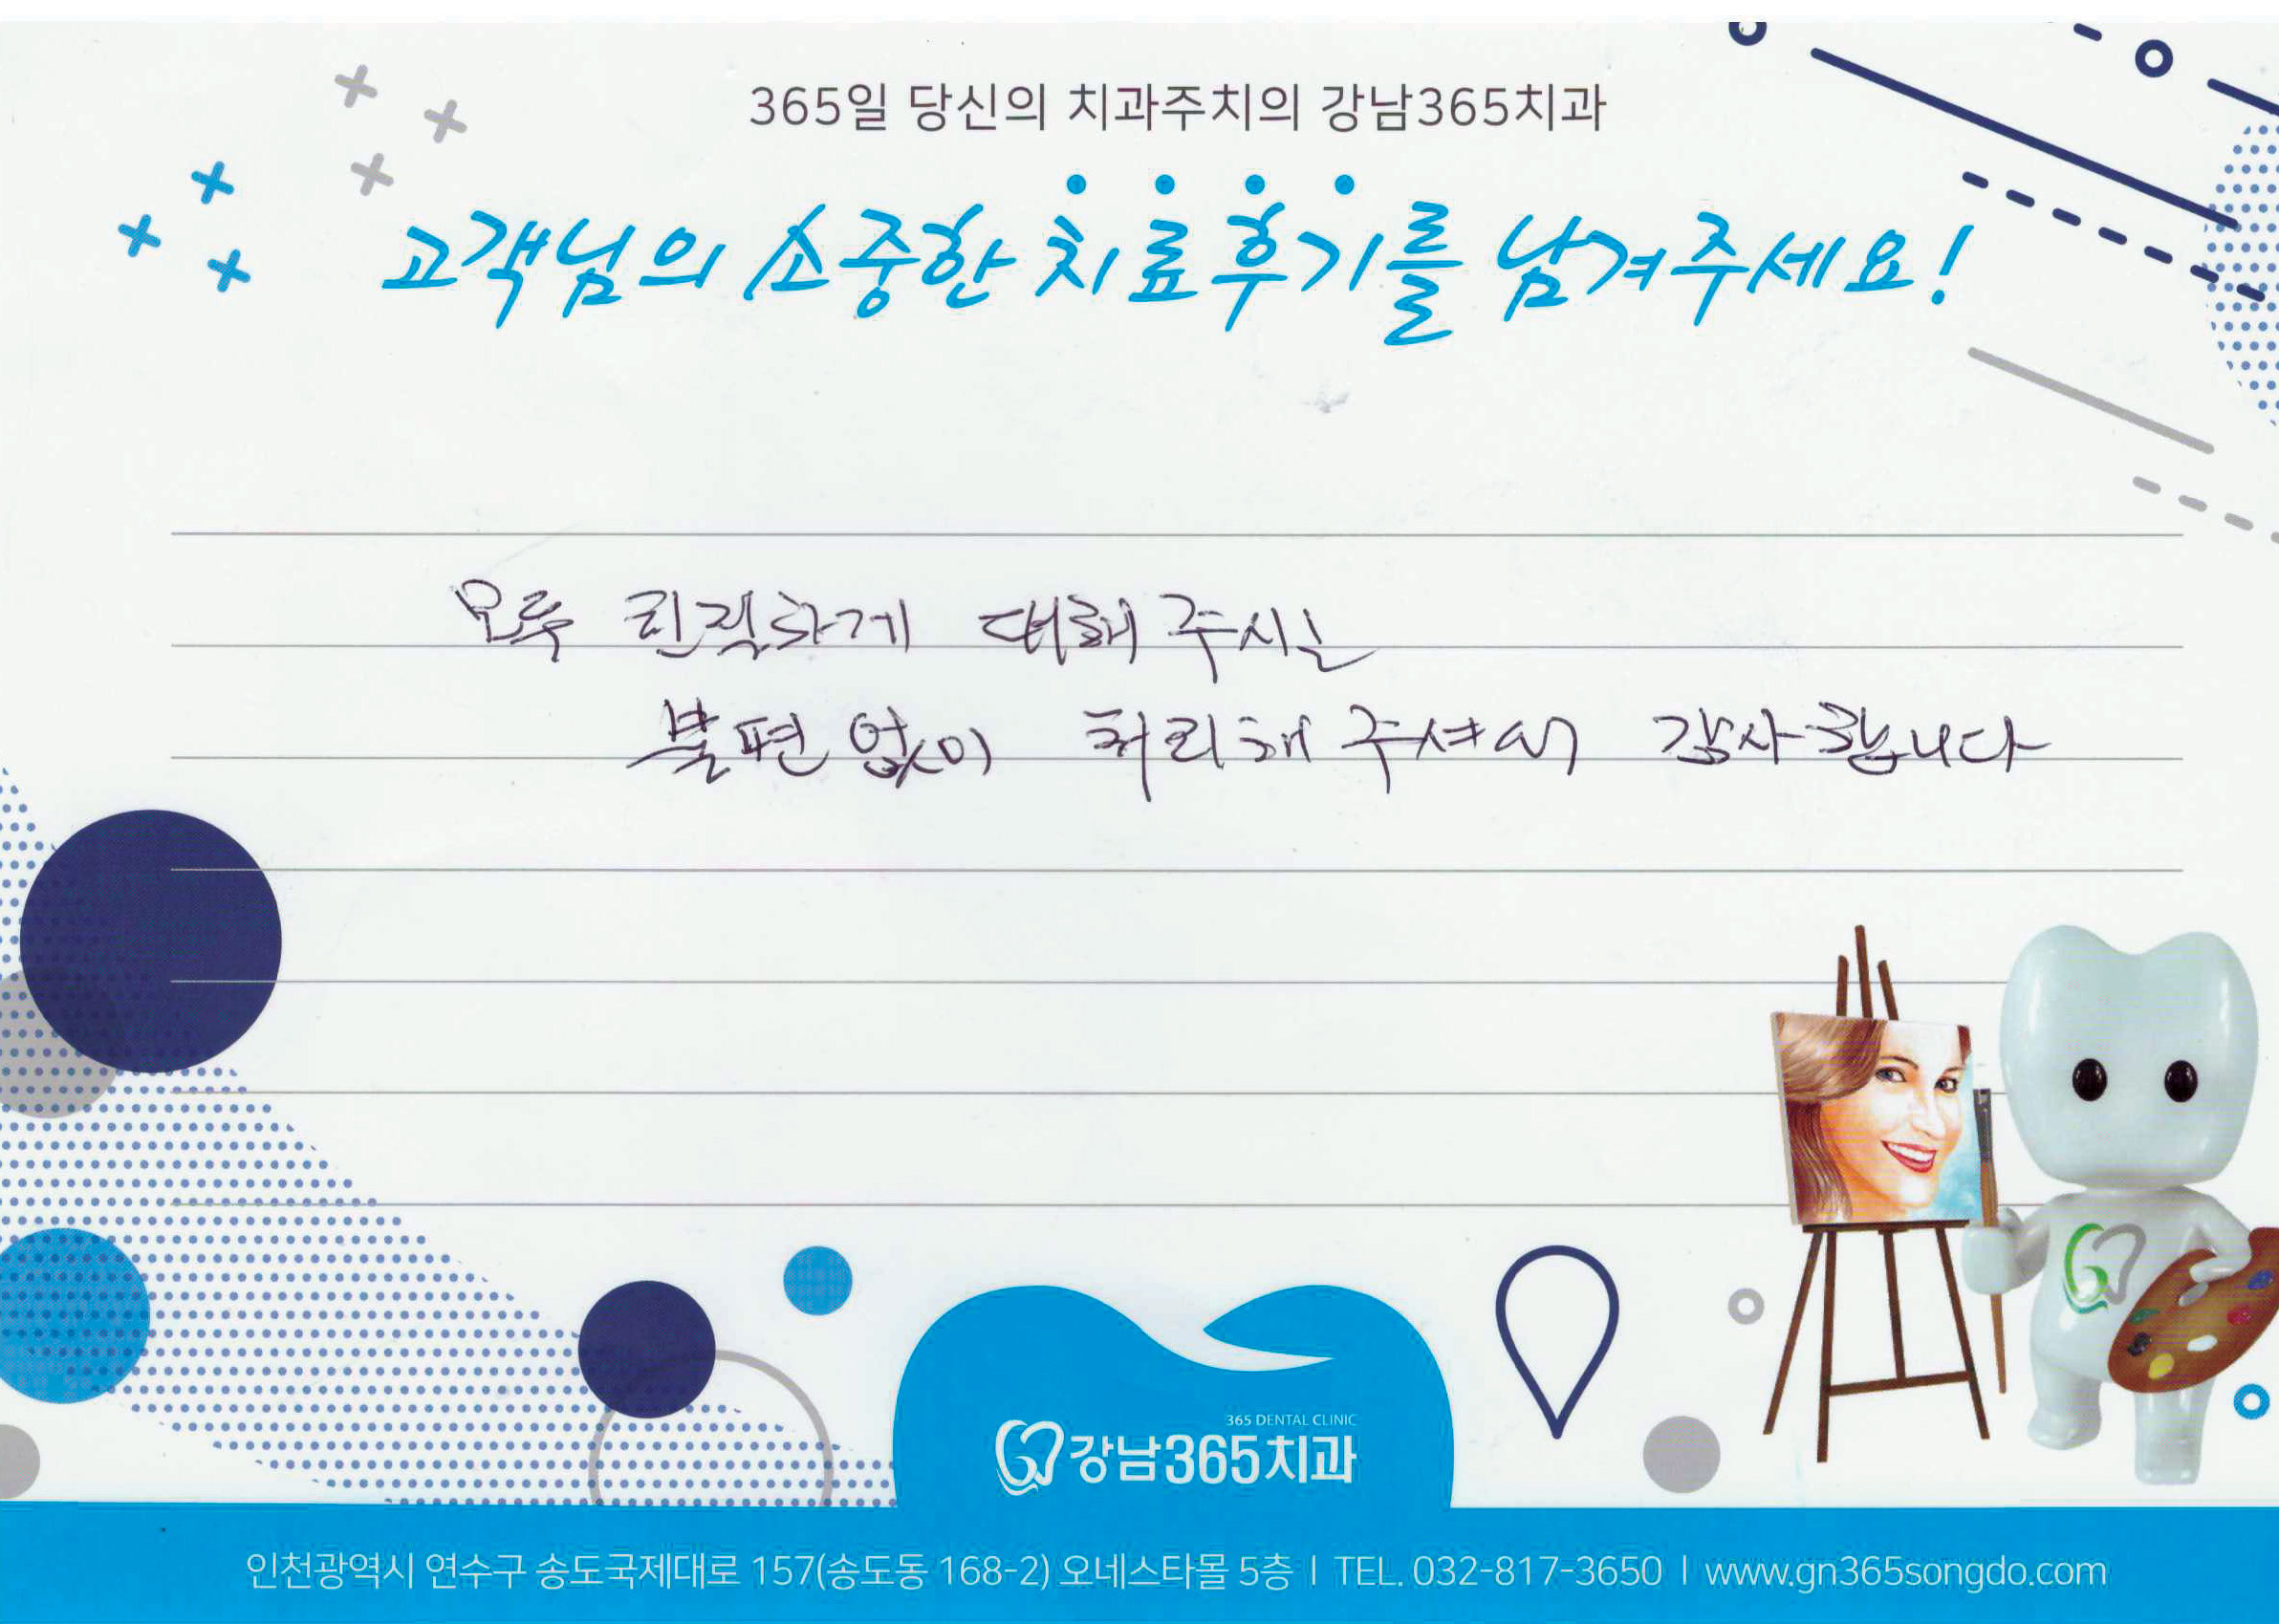 365일 당신의 치과주치의 강남365치과
고객님의 소중한 치료후기를 남겨주세요!
모두 친절하게 대해 주시는
불편 없이 처리해 주셔서 감사합니다
365 DENTAL CLINIC
강남365치과
인천광역시 연수구 송도국제대로 157(송도동 168-2) 오네스타몰 5층 | TEL. 032-817-3650 | www.gn365songdo.com